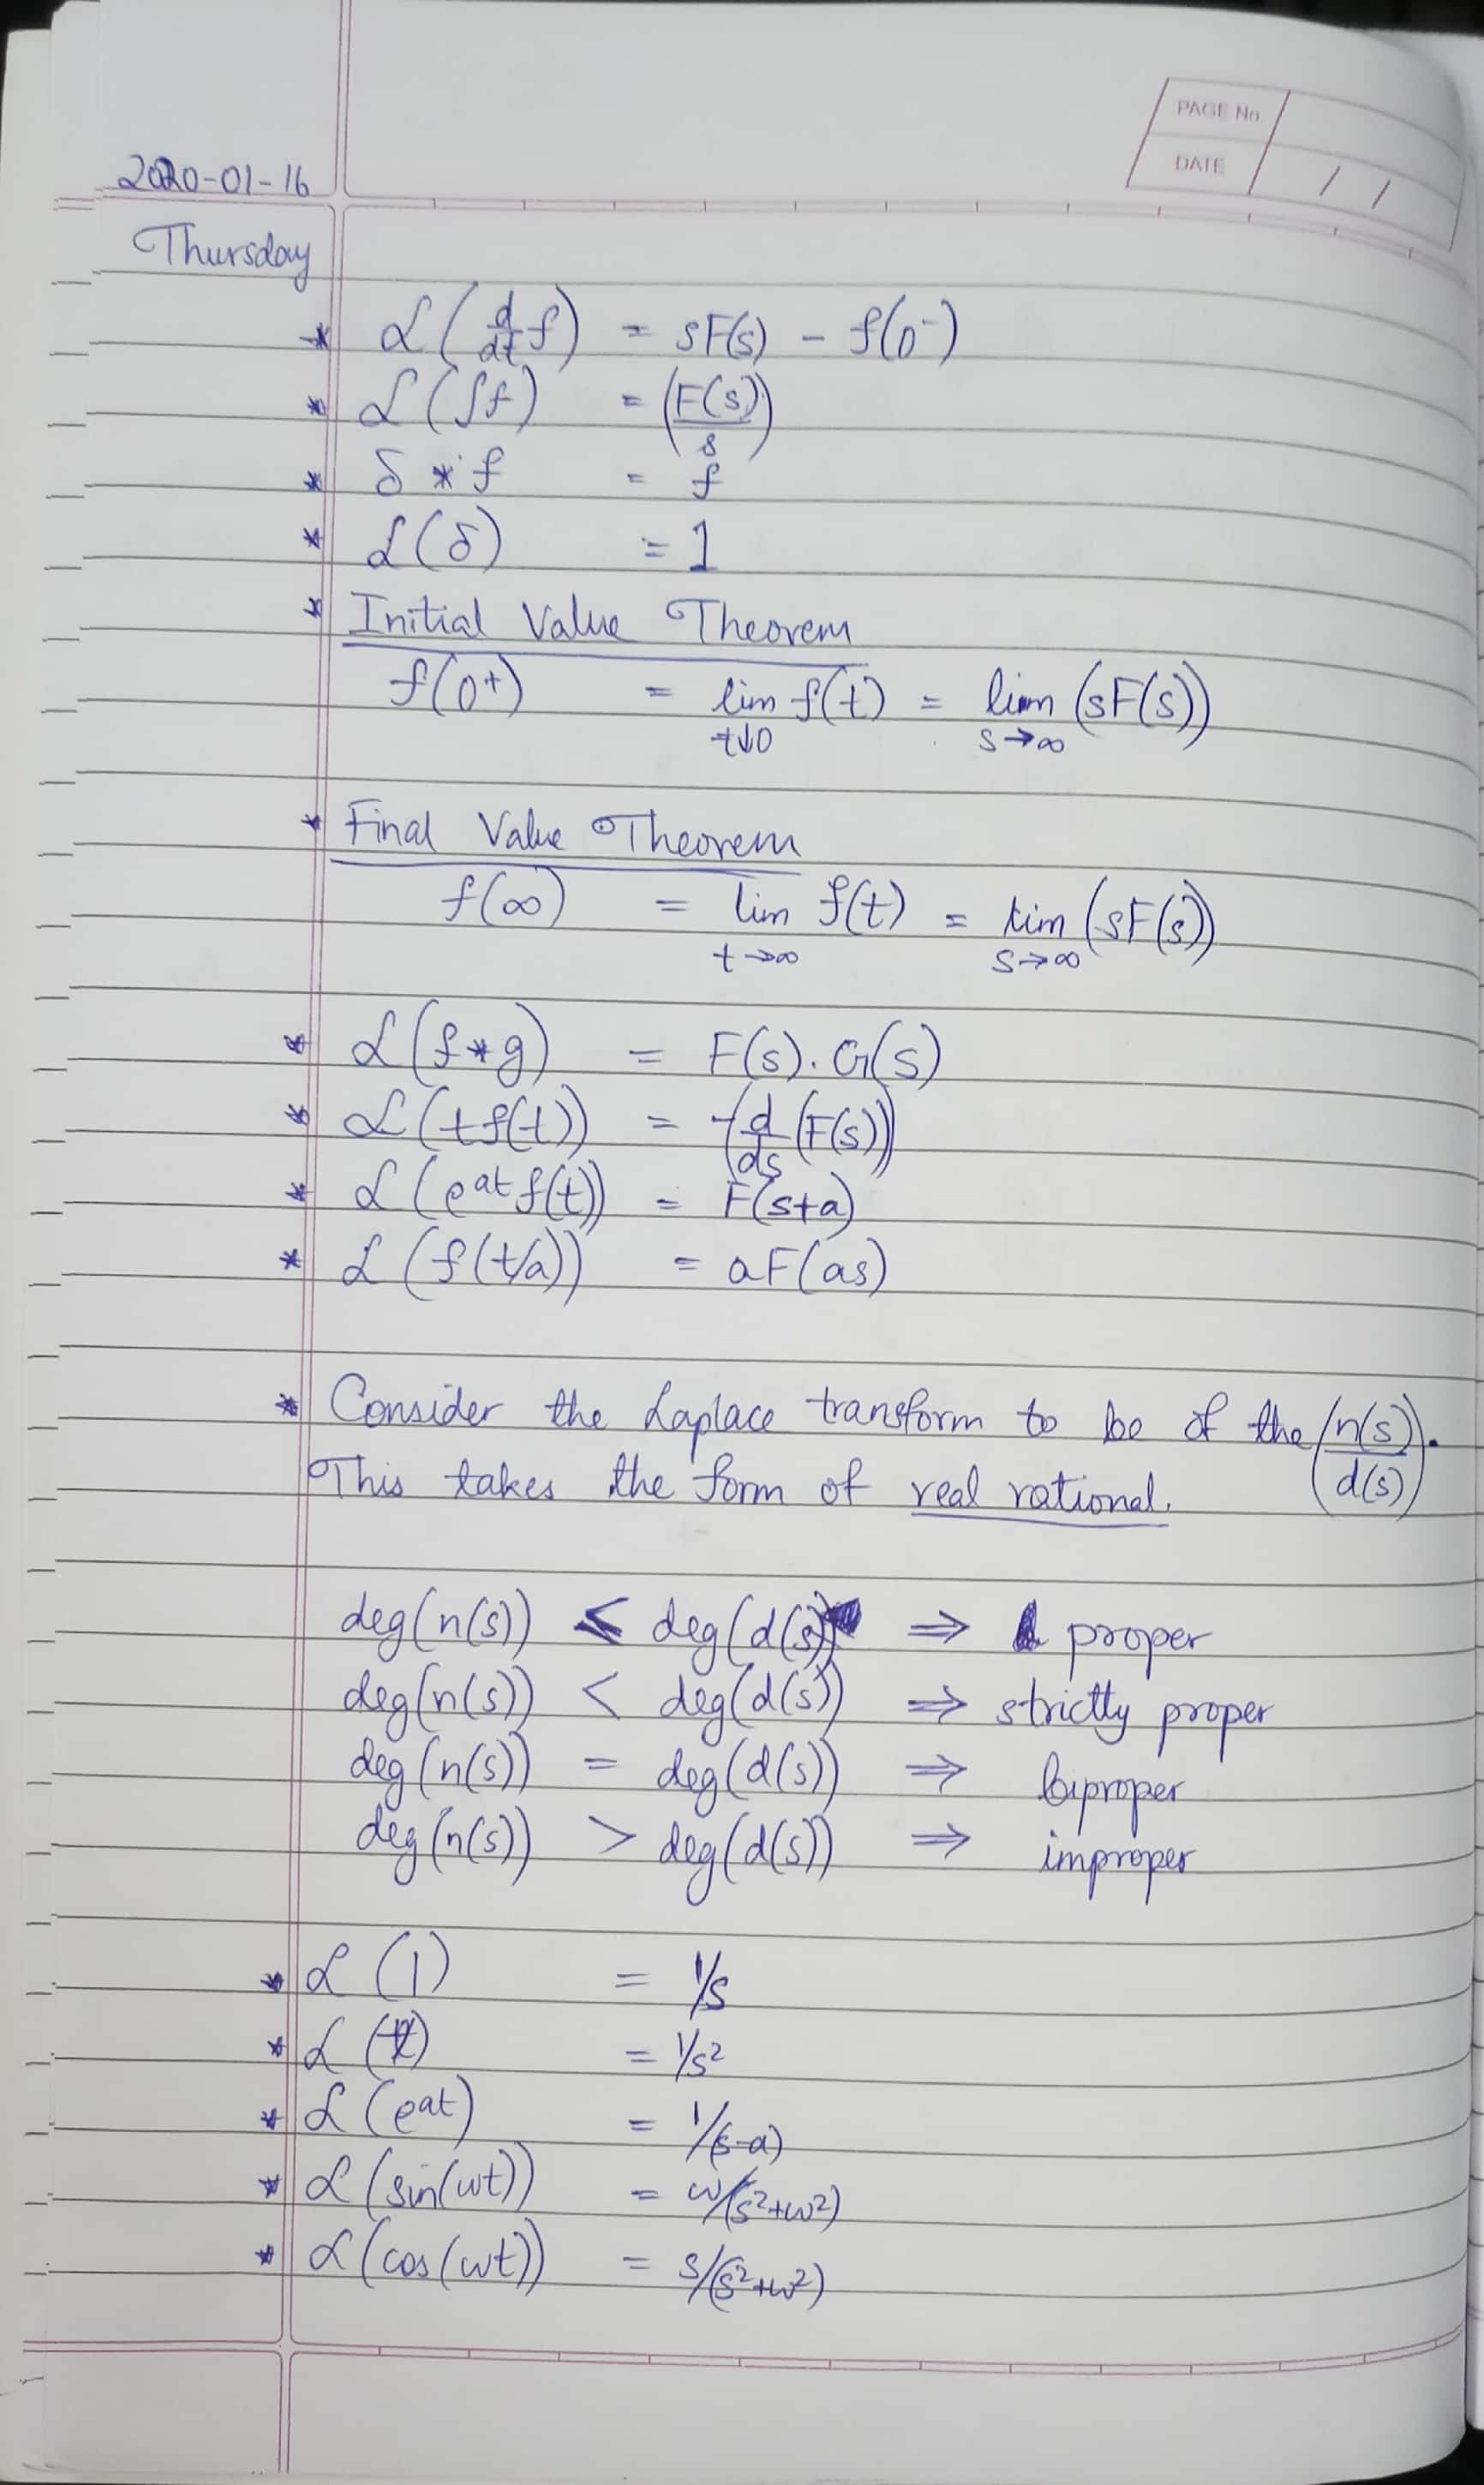 PAGE No.
DATE / /
2020-01-16
Thursday
* ℒ(d/dt f) = sF(s) - f(0⁻)
* ℒ(∫f) = (F(s)/s)
* δ * f = f
* ℒ(δ) = 1
* Initial Value Theorem
f(0⁺) = lim t↓0 f(t) = lim s→∞ (sF(s))
* Final Value Theorem
f(∞) = lim t→∞ f(t) = lim s→∞ (sF(s))
* ℒ(f*g) = F(s).G(s)
* ℒ(tf(t)) = -(d/ds (F(s)))
* ℒ(e^at f(t)) = F(s+a)
* ℒ(f(t/a)) = aF(as)
* Consider the Laplace transform to be of the (n(s)/d(s)).
This takes the form of real rational.
deg(n(s)) ≤ deg(d(s)) ⇒ proper
deg(n(s)) < deg(d(s)) ⇒ strictly proper
deg(n(s)) = deg(d(s)) ⇒ biproper
deg(n(s)) > deg(d(s)) ⇒ improper
* ℒ(1) = 1/s
* ℒ(t) = 1/s²
* ℒ(e^at) = 1/(s-a)
* ℒ(sin(ωt)) = ω/(s²+ω²)
* ℒ(cos(ωt)) = s/(s²+ω²)